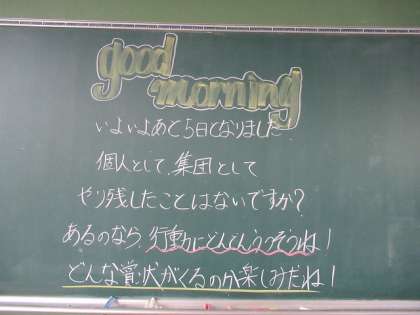 good
morning
いよいよあと5日となりました!
個人として、集団として
やり残したことはないですか?
あるのなら、行動にどんどんうつそうね!
どんな賞状がくるのか楽しみだね!